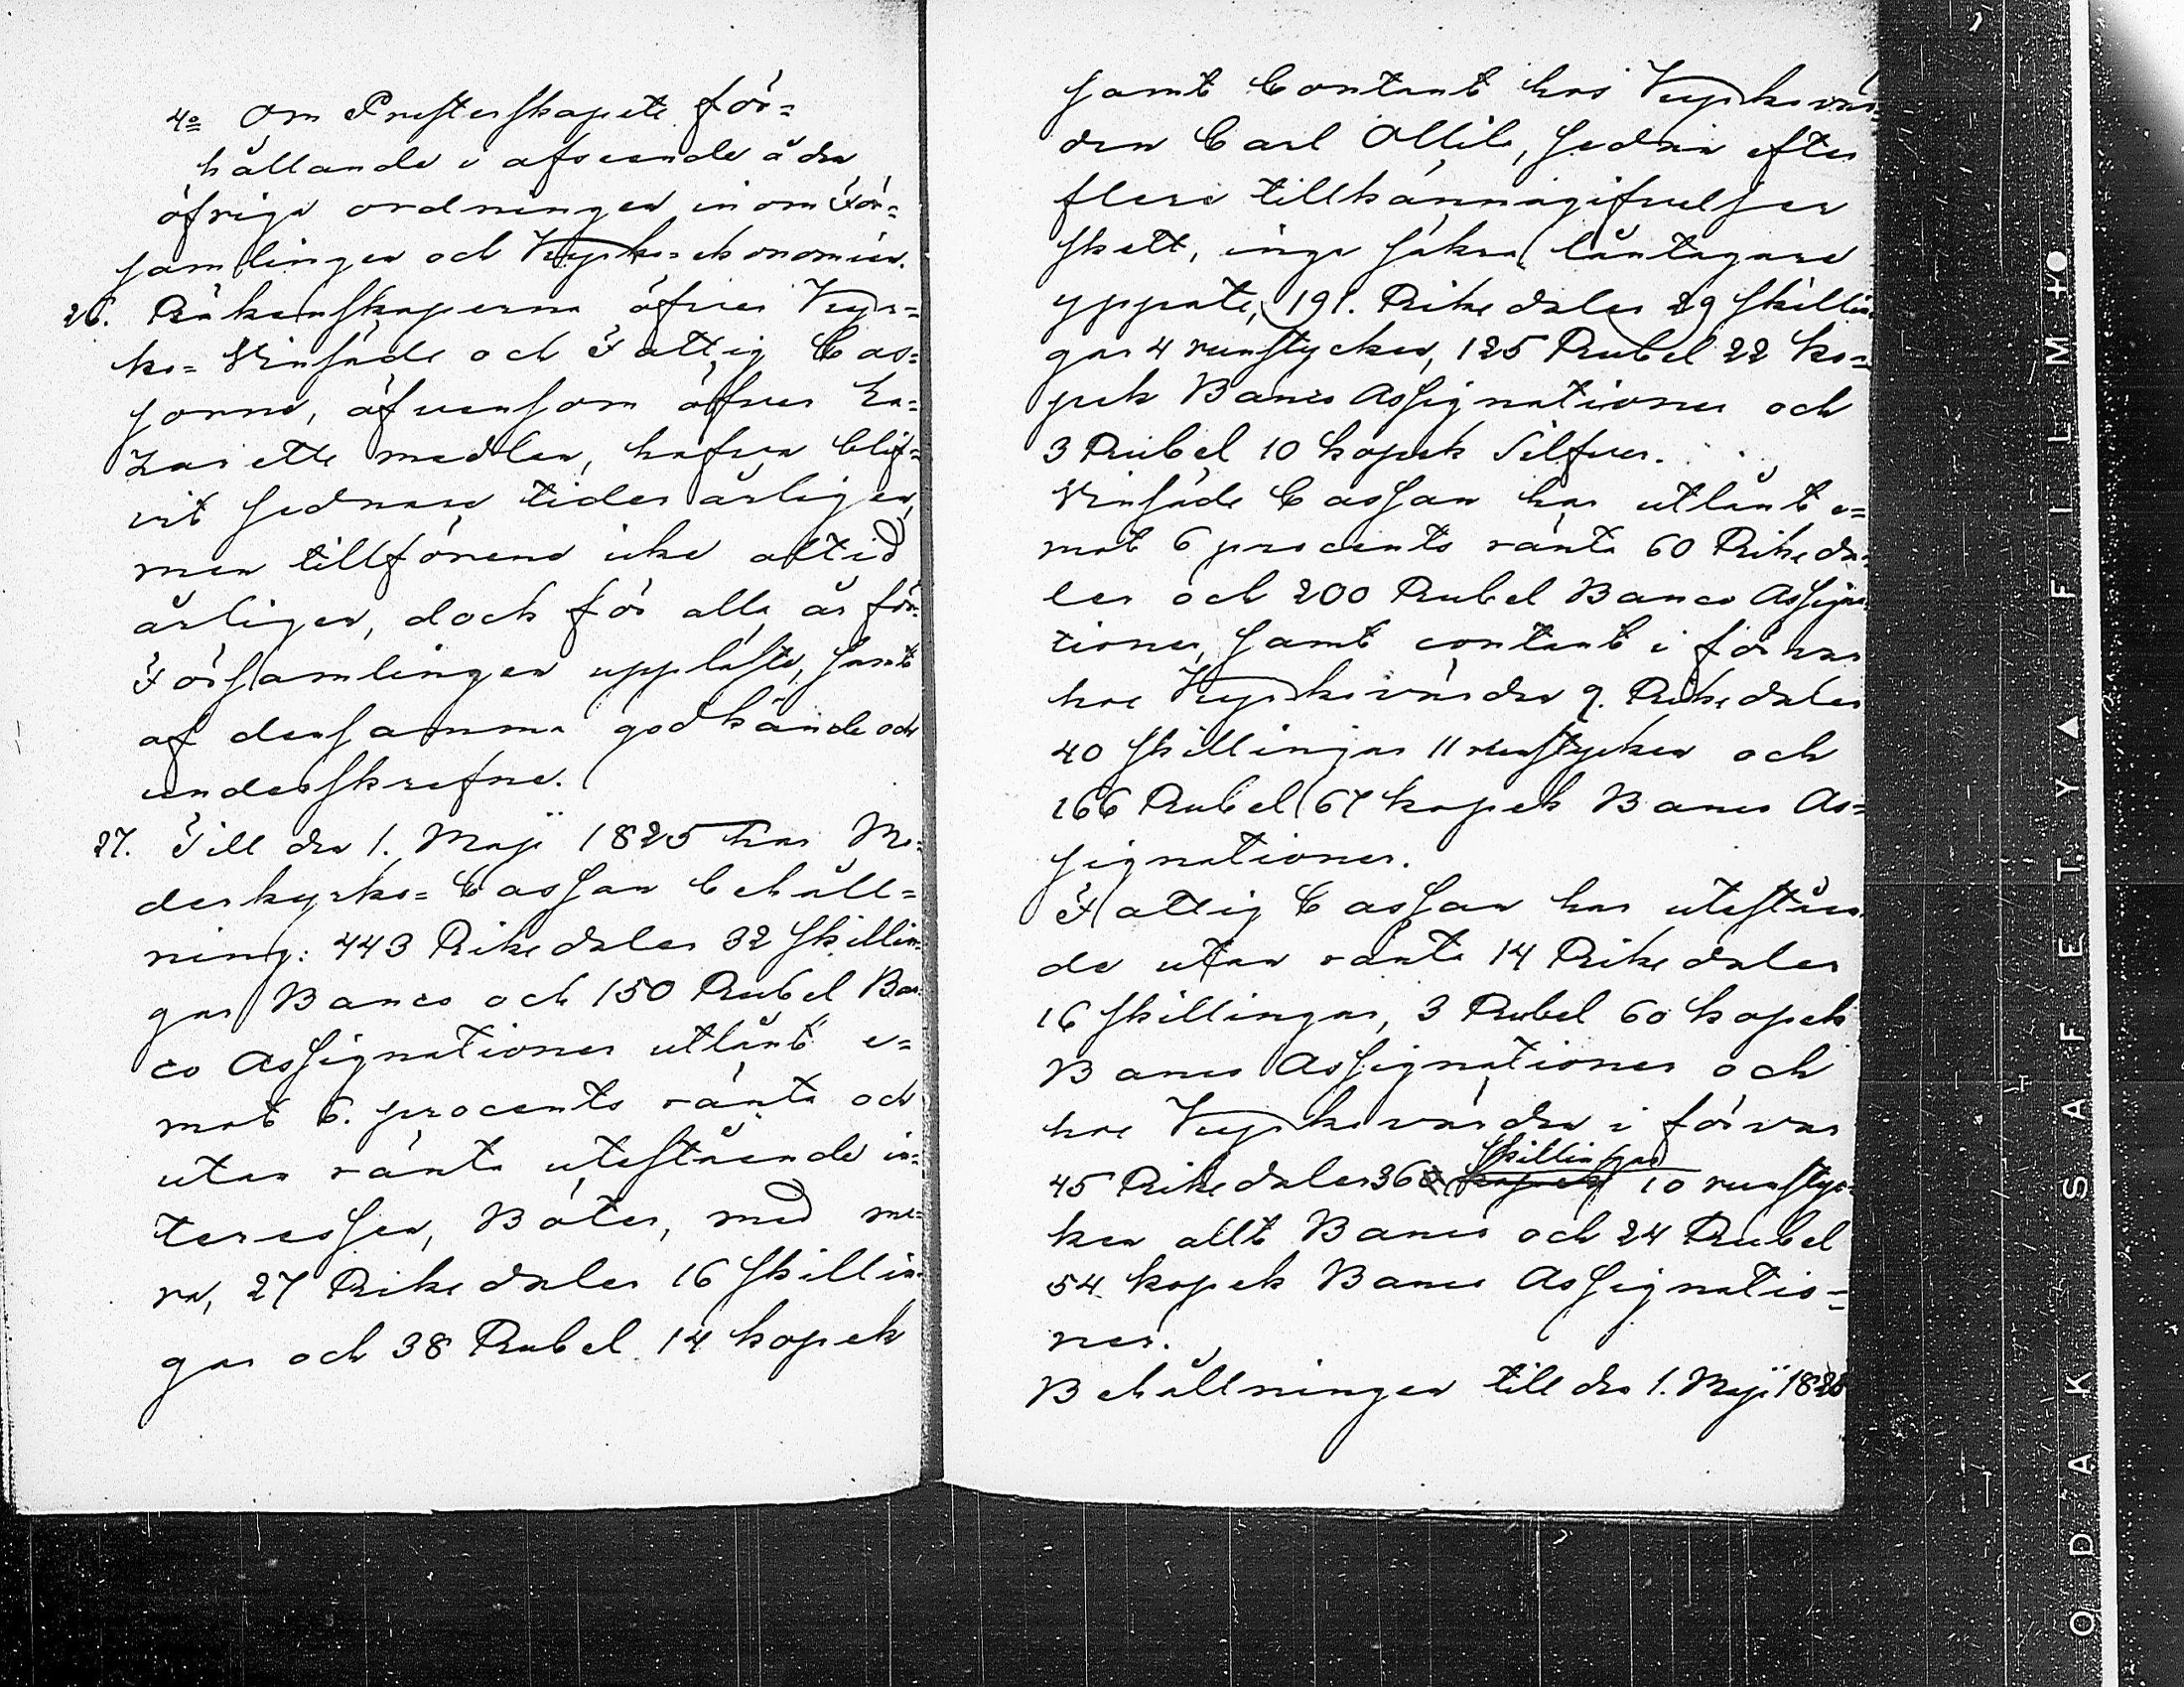 4o Om Presterskapets för=
hållande i afseende å den
öfriga ordningen inom För=
samlingen och Kyrko=ekonomien.
26. Räkenskaperna öfver Kyr=
ko= Vinsäds och Fattig Cas=
sorne, äfvensom öfver La=
zaretts medlen, hafva blif=
vit sednare tider årligen,
men tillförene icke altid
årligen, dock för alla år för
Församlingen uppläste, samt
af densamma godkände och
underskrefne.
27. Till den 1. Maji 1825 har Mo=
derkyrko=Cassan behåll=
ning: 443 Riksdaler 32 Skillin=
gar Banco och 150 Rubel Ban=
co Assignationer utlånt e=
mot 6. procents ränta och
utan ränta utestående in=
teressen, Böter, med me=
ra, 27 Riksdaler 16 Skillin=
gar och 38 Rubel 14 kopek
samt Contant hos Kyrkovär=
den Carl Ollila, sedan efter
flere tillkännagifvelser
skett, inga säkra låntagare
yppats, 191. Riksdaler 29 Skillin=
gar 4 runstycken, 125 Rubel 22 ko=
pek Banco Assignationer och
3 Rubel 10 kopek Silfver.
Vinsäds Cassan har utlånt e=
mot 6 procents ränta 60 Riksda=
ler och 200 Rubel Banco Assigna=
tioner, samt contant i förvar
hos Kyrkovärden 9. Riksdaler
40 Skillingar 11 runstycken och
166 Rubel 67 kopek Banco As=
signationer.
Fattig Cassan har uteståen=
de utan ränta 14 Riksdaler
16 Skillingar, 3 Rubel 60 kopek
Banco Assignationer och
hos Kyrkovärden i förvar
45 Riksdaler 36 kopek Skillingar 10 runstyc=
ken allt Banco och 24 Rubel
54 kopek Banco Assignatio=
ner.
Behållningen till den 1. Maji 1825
KODAK SAFETY▲FILM